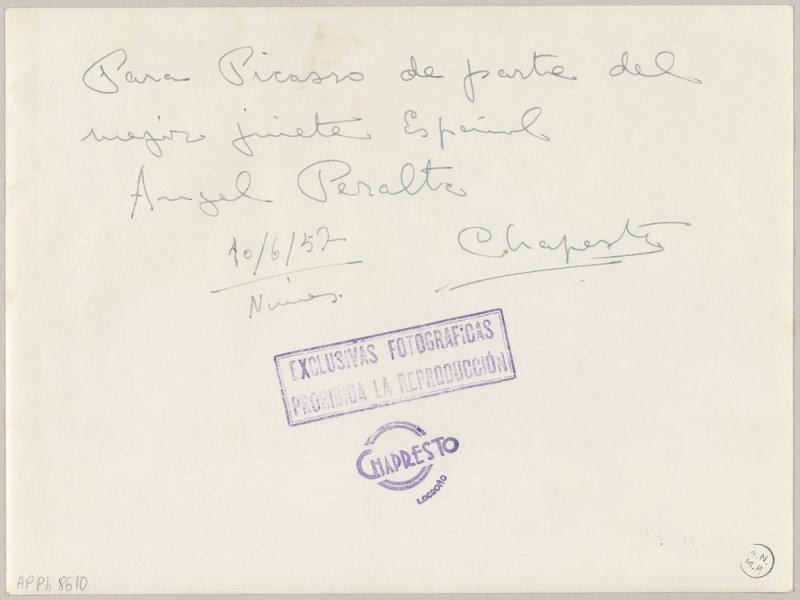 Para Picasso de parte del
mejor jinete Español
Angel Peralta
10/6/57
Nimes.
Chapresto
EXCLUSIVAS FOTOGRAFICAS
PROHIBIDA LA REPRODUCCIÓN
CHAPRESTO
LOGROÑO
APPh 8610
M.P.